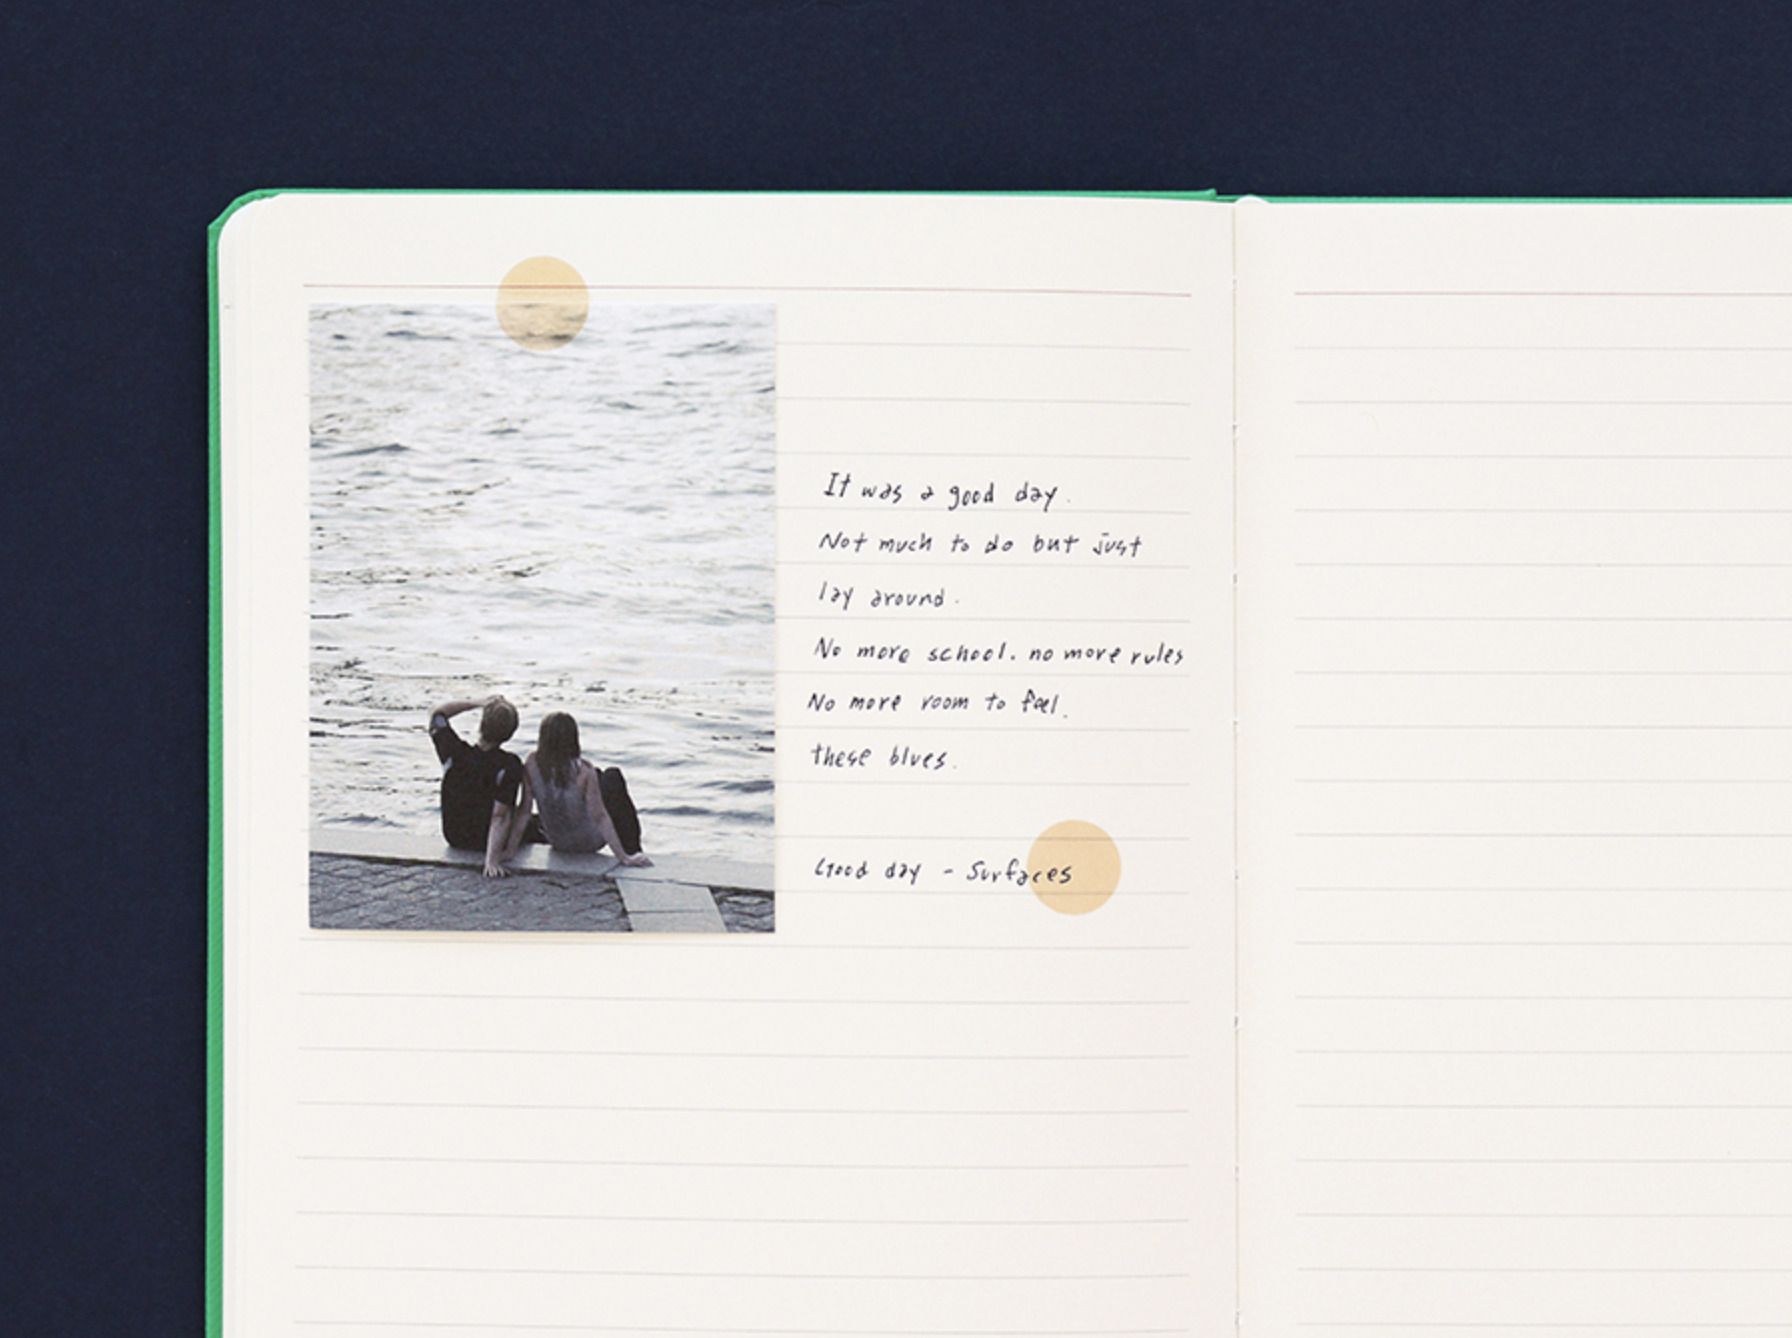 It was a good day.
Not much to do but just
lay around.
No more school. no more rules
No more room to feel.
these blues.
Good day - Surfaces